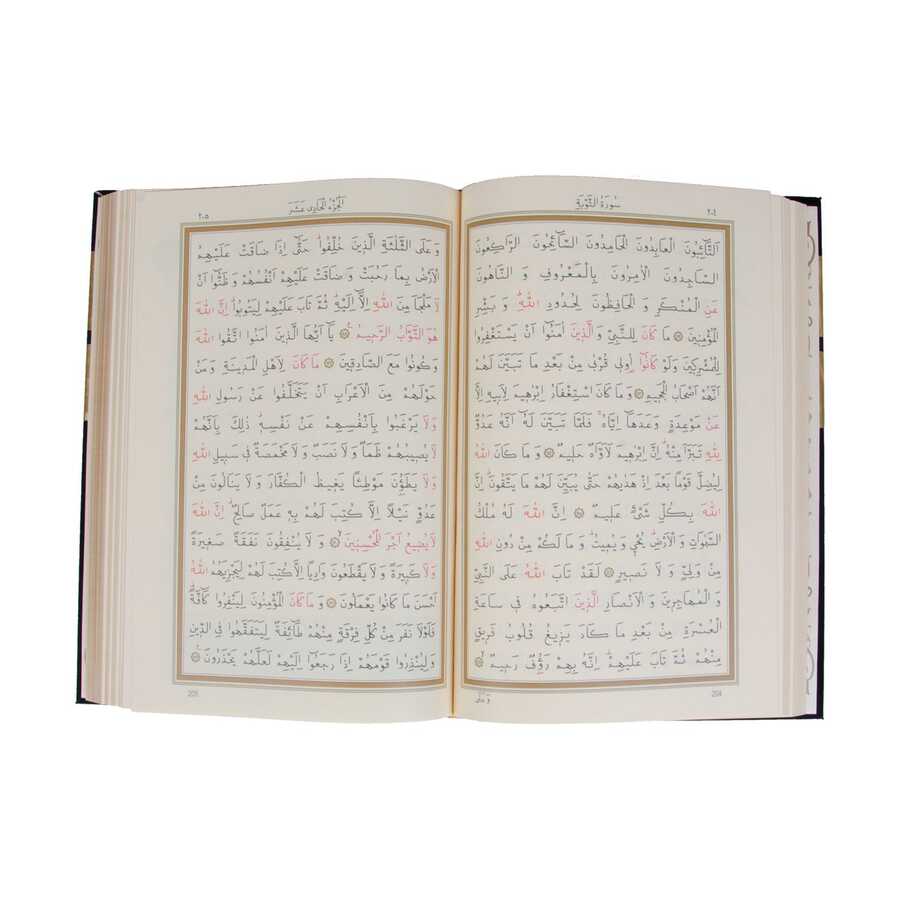 سُورَةُ التَّوْبَةِ
٢٠٤
اَلتَّٓائِبُونَ الْعَابِدُونَ الْحَامِدُونَ السَّٓائِحُونَ الرَّاكِعُونَ
السَّاجِدُونَ الْاٰمِرُونَ بِالْمَعْرُوفِ وَالنَّاهُونَ
عَنِ الْمُنْكَرِ وَالْحَافِظُونَ لِحُدُودِ اللّٰهِۜ وَبَشِّرِ
الْمُؤْمِن۪ينَ ۞ مَا كَانَ لِلنَّبِيِّ وَالَّذ۪ينَ اٰمَنُٓوا اَنْ يَسْتَغْفِرُوا
لِلْمُشْرِك۪ينَ وَلَوْ كَانُٓوا اُو۬ل۪ي قُرْبٰى مِنْ بَعْدِ مَا تَبَيَّنَ لَهُمْ
اَنَّهُمْ اَصْحَابُ الْجَح۪يمِ ۞ وَمَا كَانَ اسْتِغْفَارُ اِبْرٰه۪يمَ لِاَب۪يهِ اِلَّا
عَنْ مَوْعِدَةٍ وَعَدَهَٓا اِيَّاهُۚ فَلَمَّا تَبَيَّنَ لَهُٓ اَنَّهُ عَدُوٌّ
لِلّٰهِ تَبَرَّاَ مِنْهُۜ اِنَّ اِبْرٰه۪يمَ لَاَوَّاهٌ حَل۪يمٌ ۞ وَمَا كَانَ اللّٰهُ
لِيُضِلَّ قَوْمًا بَعْدَ اِذْ هَدٰيهُمْ حَتّٰى يُبَيِّنَ لَهُمْ مَا يَتَّقُونَۜ اِنَّ
اللّٰهَ بِكُلِّ شَيْءٍ عَل۪يمٌ ۞ اِنَّ اللّٰهَ لَهُ مُلْكُ
السَّمٰوَاتِ وَالْاَرْضِۜ يُحْي۪ وَيُم۪يتُۜ وَمَا لَكُمْ مِنْ دُونِ اللّٰهِ
مِنْ وَلِيٍّ وَلَا نَص۪يرٍ ۞ لَقَدْ تَابَ اللّٰهُ عَلَى النَّبِيِّ
وَالْمُهَاجِر۪ينَ وَالْاَنْصَارِ الَّذ۪ينَ اتَّبَعُوهُ ف۪ي سَاعَةِ
الْعُسْرَةِ مِنْ بَعْدِ مَا كَادَ يَز۪يغُ قُلُوبُ فَر۪يقٍ
مِنْهُمْ ثُمَّ تَابَ عَلَيْهِمْۜ اِنَّهُ بِهِمْ رَؤُ۫فٌ رَح۪يمٌۙ ۞
204
وَعَلَى
اَلْجُزْءُ الْحَاد۪ي عَشَرَ
٢٠٥
وَعَلَى الثَّلٰثَةِ الَّذ۪ينَ خُلِّفُواۜ حَتّٰٓى اِذَا ضَاقَتْ عَلَيْهِمُ
الْاَرْضُ بِمَا رَحُبَتْ وَضَاقَتْ عَلَيْهِمْ اَنْفُسُهُمْ وَظَنُّٓوا اَنْ
لَا مَلْجَاَ مِنَ اللّٰهِ اِلَّٓا اِلَيْهِۜ ثُمَّ تَابَ عَلَيْهِمْ لِيَتُوبُواۜ اِنَّ اللّٰهَ
هُوَ التَّوَّابُ الرَّح۪يمُ۟ ۞ يَٓا اَيُّهَا الَّذ۪ينَ اٰمَنُوا اتَّقُوا اللّٰهَ
وَكُونُوا مَعَ الصَّادِق۪ينَ ۞ مَا كَانَ لِاَهْلِ الْمَد۪ينَةِ وَمَنْ
حَوْلَهُمْ مِنَ الْاَعْرَابِ اَنْ يَتَخَلَّفُوا عَنْ رَسُولِ اللّٰهِ
وَلَا يَرْغَبُوا بِاَنْفُسِهِمْ عَنْ نَفْسِه۪ۜ ذٰلِكَ بِاَنَّهُمْ
لَا يُص۪يبُهُمْ ظَمَاٌ وَلَا نَصَبٌ وَلَا مَخْمَصَةٌ ف۪ي سَب۪يلِ اللّٰهِ
وَلَا يَطَؤُ۫نَ مَوْطِئًا يَغ۪يظُ الْكُفَّارَ وَلَا يَنَالُونَ مِنْ
عَدُوٍّ نَيْلًا اِلَّا كُتِبَ لَهُمْ بِه۪ عَمَلٌ صَالِحٌۜ اِنَّ اللّٰهَ
لَا يُض۪يعُ اَجْرَ الْمُحْسِن۪ينَۙ ۞ وَلَا يُنْفِقُونَ نَفَقَةً صَغ۪يرَةً
وَلَا كَب۪يرَةً وَلَا يَقْطَعُونَ وَادِيًا اِلَّا كُتِبَ لَهُمْ لِيَجْزِيَهُمُ اللّٰهُ
اَحْسَنَ مَا كَانُوا يَعْمَلُونَ ۞ وَمَا كَانَ الْمُؤْمِنُونَ لِيَنْفِرُوا كَٓافَّةًۜ
فَلَوْلَا نَفَرَ مِنْ كُلِّ فِرْقَةٍ مِنْهُمْ طَٓائِفَةٌ لِيَتَفَقَّهُوا فِي الدّ۪ينِ
وَلِيُنْذِرُوا قَوْمَهُمْ اِذَا رَجَعُٓوا اِلَيْهِمْ لَعَلَّهُمْ يَحْذَرُونَ۟ ۞
205